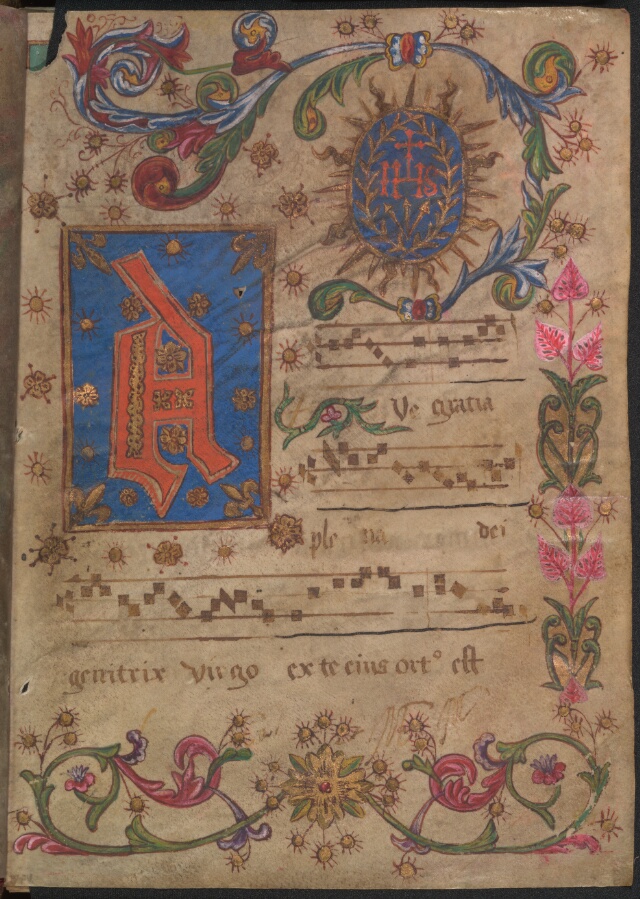 IHS
A
Ve gratia
ple na dei
genitrix Virgo ex te eius ortº est